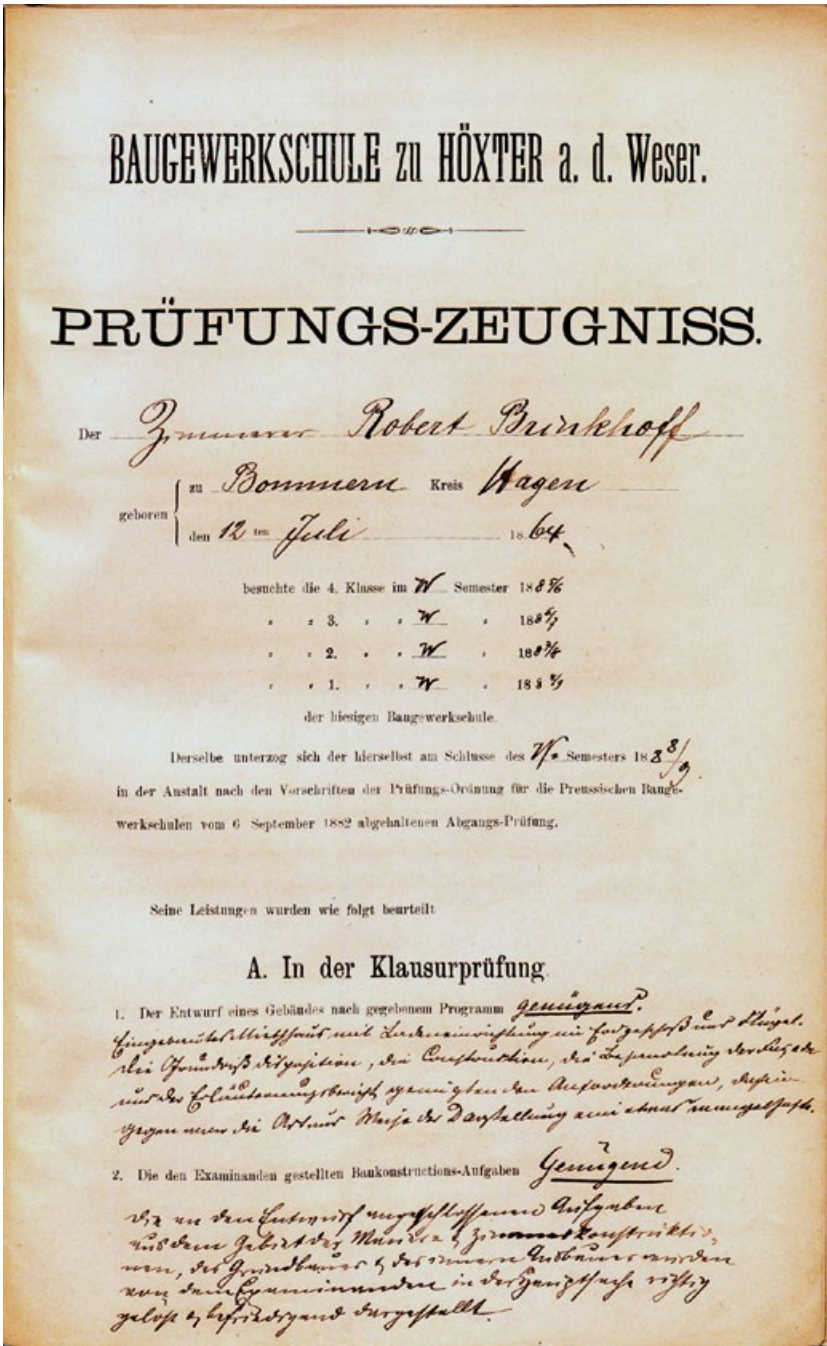 BAUGEWERKSCHULE zu HÖXTER a. d. Weser.
PRÜFUNGS-ZEUGNISS.
Der Zimmerer Robert Brinkhoff
geboren zu Bommern Kreis Hagen
den 12 ten Juli 1864
besuchte die 4. Klasse im W Semester 188 5/6
" " 3. " " W " 188 6/7
" " 2. " " W " 188 7/8
" " 1. " " W " 188 8/9
der hiesigen Baugewerkschule.
Derselbe unterzog sich der hierselbst am Schlusse des W. Semesters 188 8/9
in der Anstalt nach den Vorschriften der Prüfungs-Ordnung für die Preussischen Bauge-
werkschulen vom 6 September 1882 abgehaltenen Abgangs-Prüfung.
Seine Leistungen wurden wie folgt beurteilt
A. In der Klausurprüfung.
1. Der Entwurf eines Gebäudes nach gegebenem Programm genügend.
Eingebautes Miethhaus mit Ladeneinrichtung im Erdgeschoß und Flügel.
Die Grundrißdisposition, die Construktion, die Behandlung der Façade
und der Erläuterungsbericht genügten den Anforderungen, dahin-
gegen war die Art und Weise der Darstellung eine etwas mangelhafte.
2. Die den Examinanden gestellten Baukonstructions-Aufgaben Genügend.
Die an den Entwurf angeschlossenen Aufgaben
aus dem Gebiet der Maurer & Zimmerkonstruktio-
nen, des Grundbaues & des innern Ausbaues wurden
von dem Examinanden in der Hauptsache richtig
gelöst & befriedigend dargestellt.